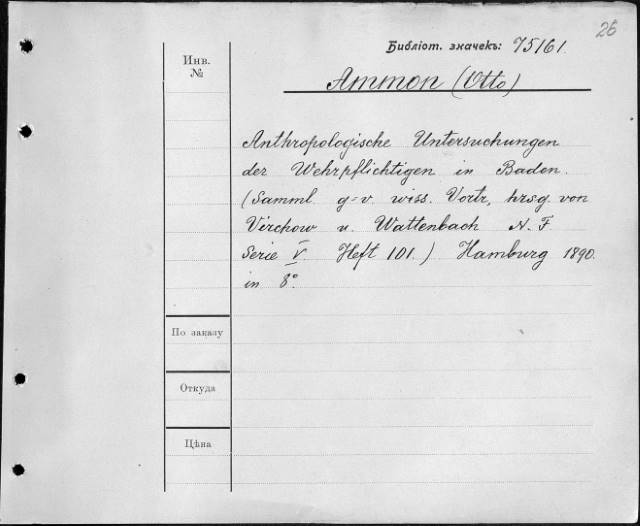 26
Библіот. значекъ: 75161.
Инв. №
Ammon (Otto)
Anthropologische Untersuchungen
der Wehrpflichtigen in Baden.
(Samml. g-v. wiss. Vortr., hrsg. von
Virchow u. Wattenbach N. F.
Serie V. Heft 101.) Hamburg 1890.
in 8°.
По заказу
Откуда
Цѣна